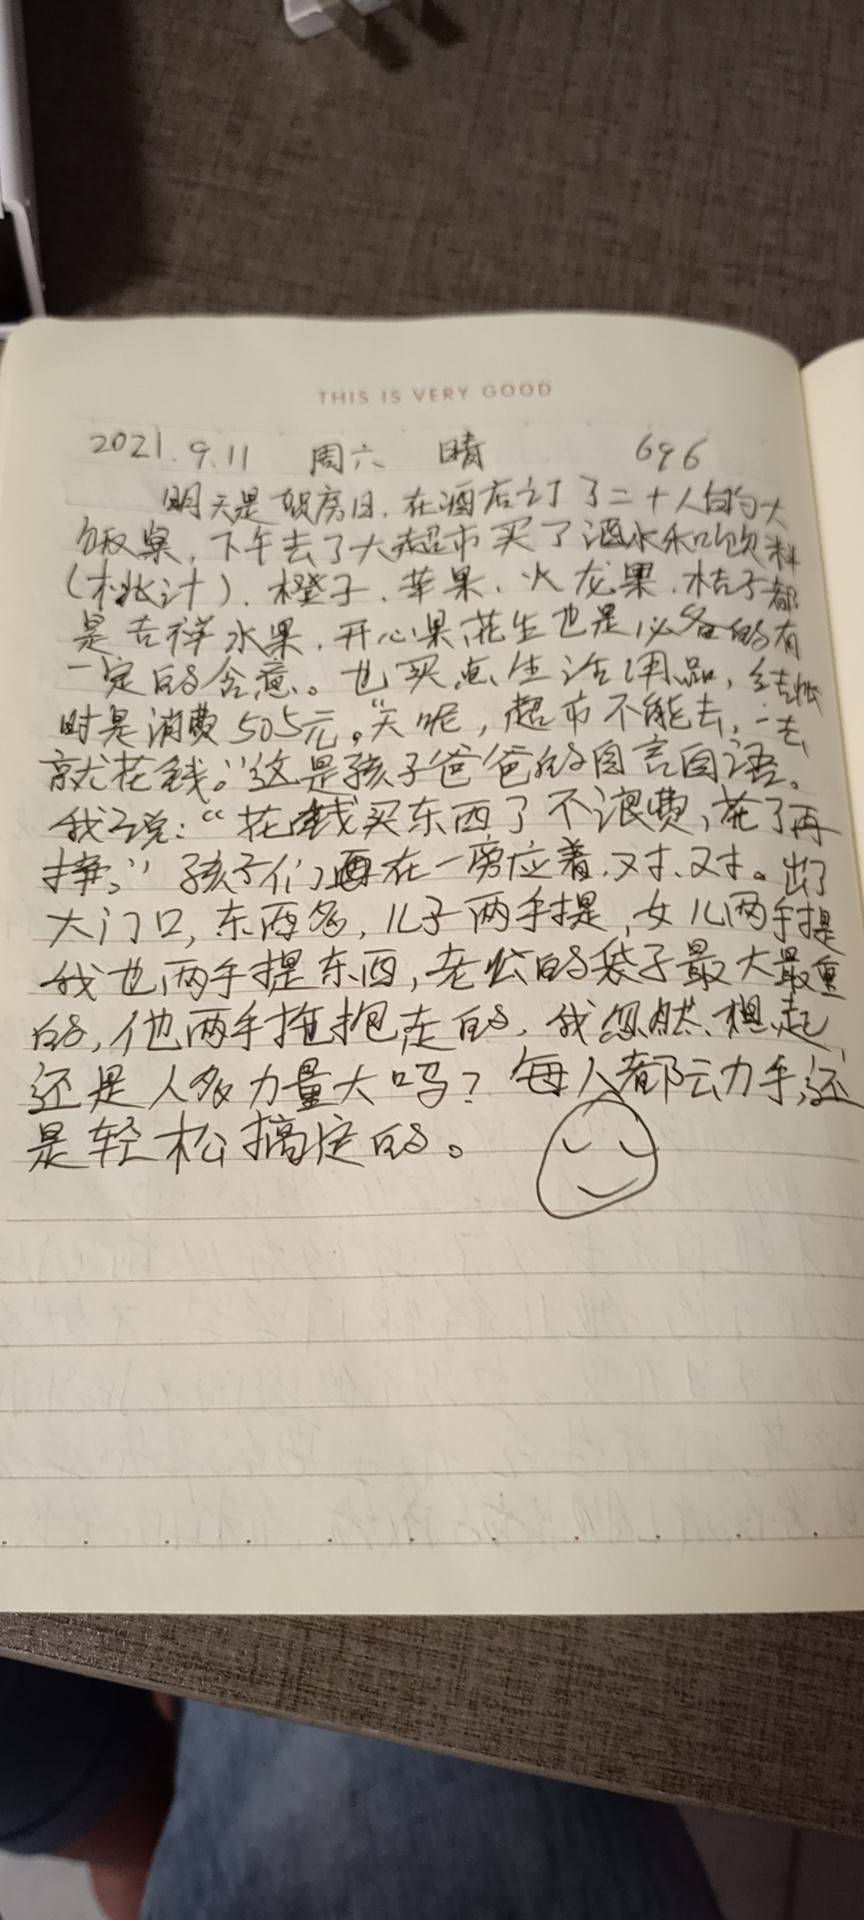 THIS IS VERY GOOD
2021.9.11 周六 晴 696
明天是贺房日.在酒店订了二十人的大
饭桌,下午去了大超市买了酒水和饮料
(桃汁).橙子.苹果.火龙果.桔子都
是吉祥水果.开心果,花生也是必备的有
一定的含意。也买点生活用品,结帐
时是消费505元。"天呢,超市不能去,一去
就花钱。"这是孩子爸爸的自言自语。
我说:"花钱买东西了不浪费,花了再
挣。"孩子们在一旁应着.对.对。出了
大门口,东西多,儿子两手提,女儿两手提
我也两手提东西,老公的袋子最大最重
的,他两手抱走的.我忽然想起
还是人多力量大吗?每人都动手,还
是轻松搞定的。